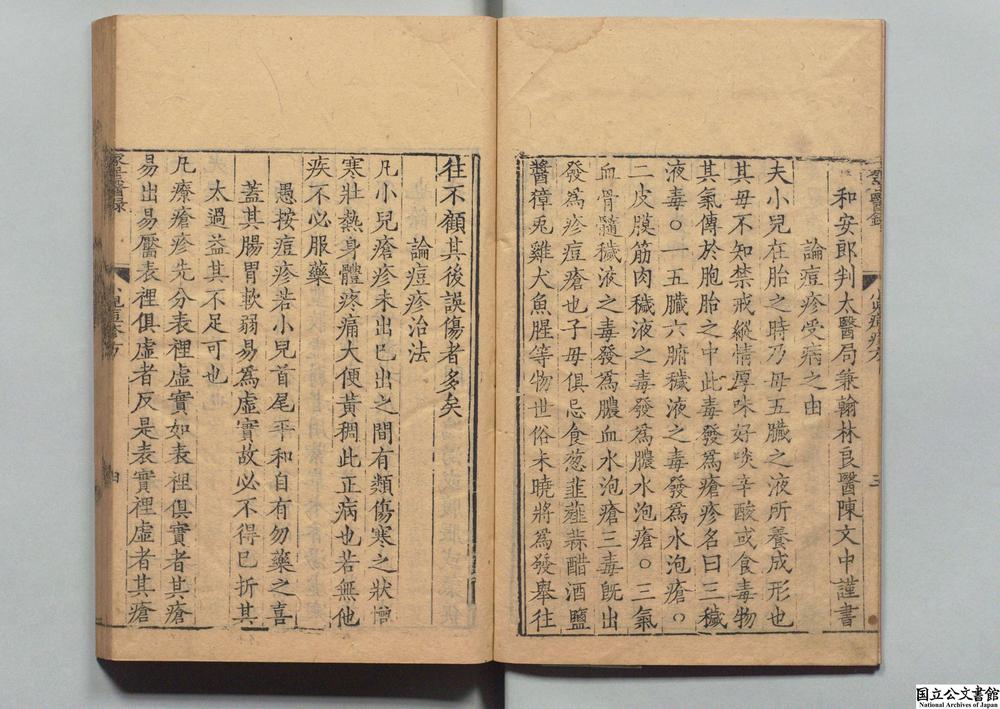 和安郎判太醫局兼翰林良醫陳文中謹書
論痘疹受病之由
夫小兒在胎之時乃母五臟之液所養成形也
其母不知禁戒縱情厚味好啖辛酸或食毒物
其氣傳於胞胎之中此毒發爲瘡疹名曰三穢
液毒○一五臟六腑穢液之毒發爲水泡瘡○
二皮膜筋肉穢液之毒發爲膿水泡瘡○三氣
血骨髓穢液之毒發爲膿血水泡瘡三毒旣出
發爲疹痘瘡也子母俱忌食葱韭薤蒜醋酒鹽
醬獐兎雞犬魚腥等物世俗未曉將爲發舉往
三
往不顧其後誤傷者多矣
論痘疹治法
凢小兒瘡疹未出已出之間有類傷寒之狀憎
寒壯熱身體疼痛大便黃稠此正病也若無他
疾不必服藥
愚按痘疹若小兒首尾平和自有勿藥之喜
蓋其腸胃軟弱易爲虛實故必不得已折其
太過益其不足可也
凢療瘡疹先分表裡虛實如表裡俱實者其瘡
易出易靨表裡俱虛者反是表實裡虛者其瘡
四
国立公文書館
National Archives of Japan